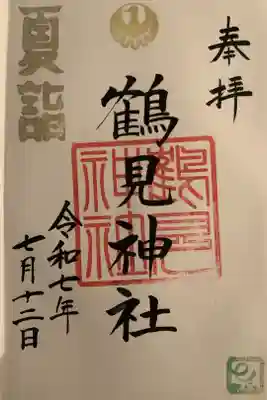 奉拝
夏詣
鶴見神社
鶴見神社
令和七年
七月十二日